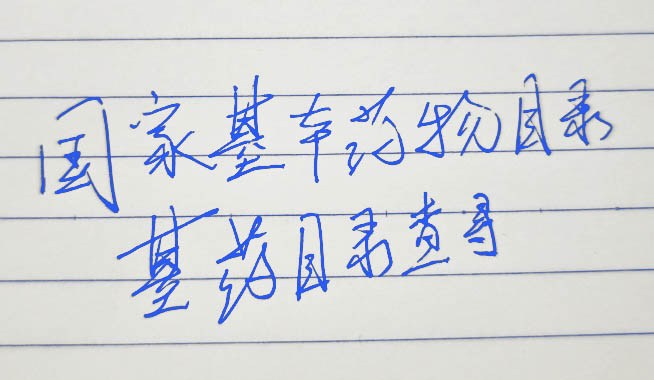 国家基本药物目录
基药目录查寻